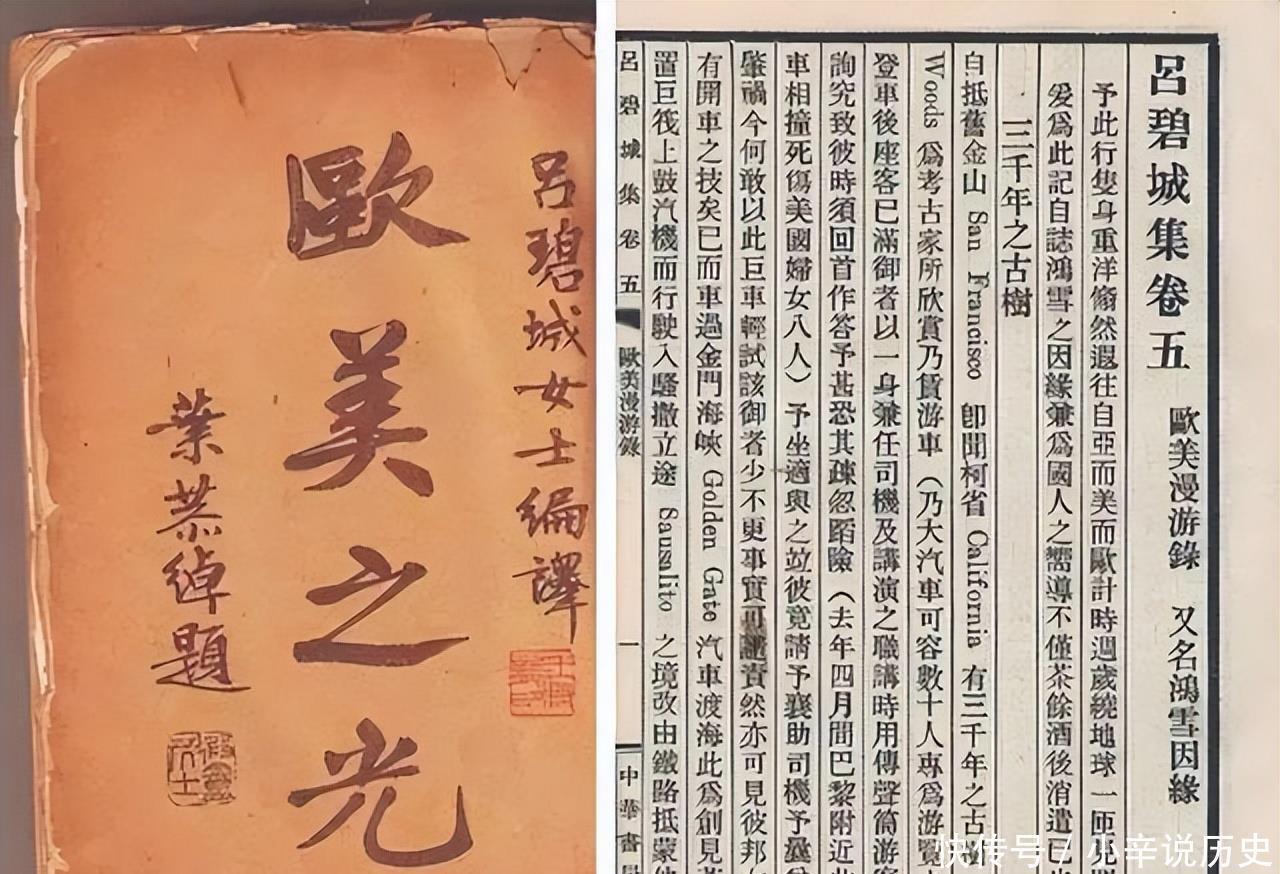 呂碧城女士編譯
歐美之光
葉恭綽題
呂碧城集卷五
歐美漫游錄 又名鴻雪因緣
予此行隻身重洋翛然遐往自亞而美而歐計時週歲繞地球一匝
爰爲此記自誌鴻雪之因緣兼爲國人之嚮導不僅茶餘酒後消遣已
三千年之古樹
自抵舊金山 San Francisco 卽聞柯省 California 有三千年之古樹
Woods 爲考古家所欣賞乃賃游車(乃大汽車可容數十人專爲游覽
登車後座客已滿御者以一身兼任司機及講演之職講時用傳聲筒游客
詢究致彼時須回首作答予甚恐其疎忽蹈險(去年四月間巴黎附近此
車相撞死傷美國婦女八人)予坐適與之竝彼竟請予襄助司機予曩
肇禍今何敢以此巨車輕試該御者少不更事實可譴責然亦可見彼邦
有開車之技矣已而車過金門海峽 Golden Gate 汽車渡海此爲創見
置巨筏上鼓汽機而行駛入騷撒立途 Sausalito 之境改由鐵路抵蒙
呂碧城集卷五 歐美漫游錄 一 中華書局
快传号 / 小辛说历史